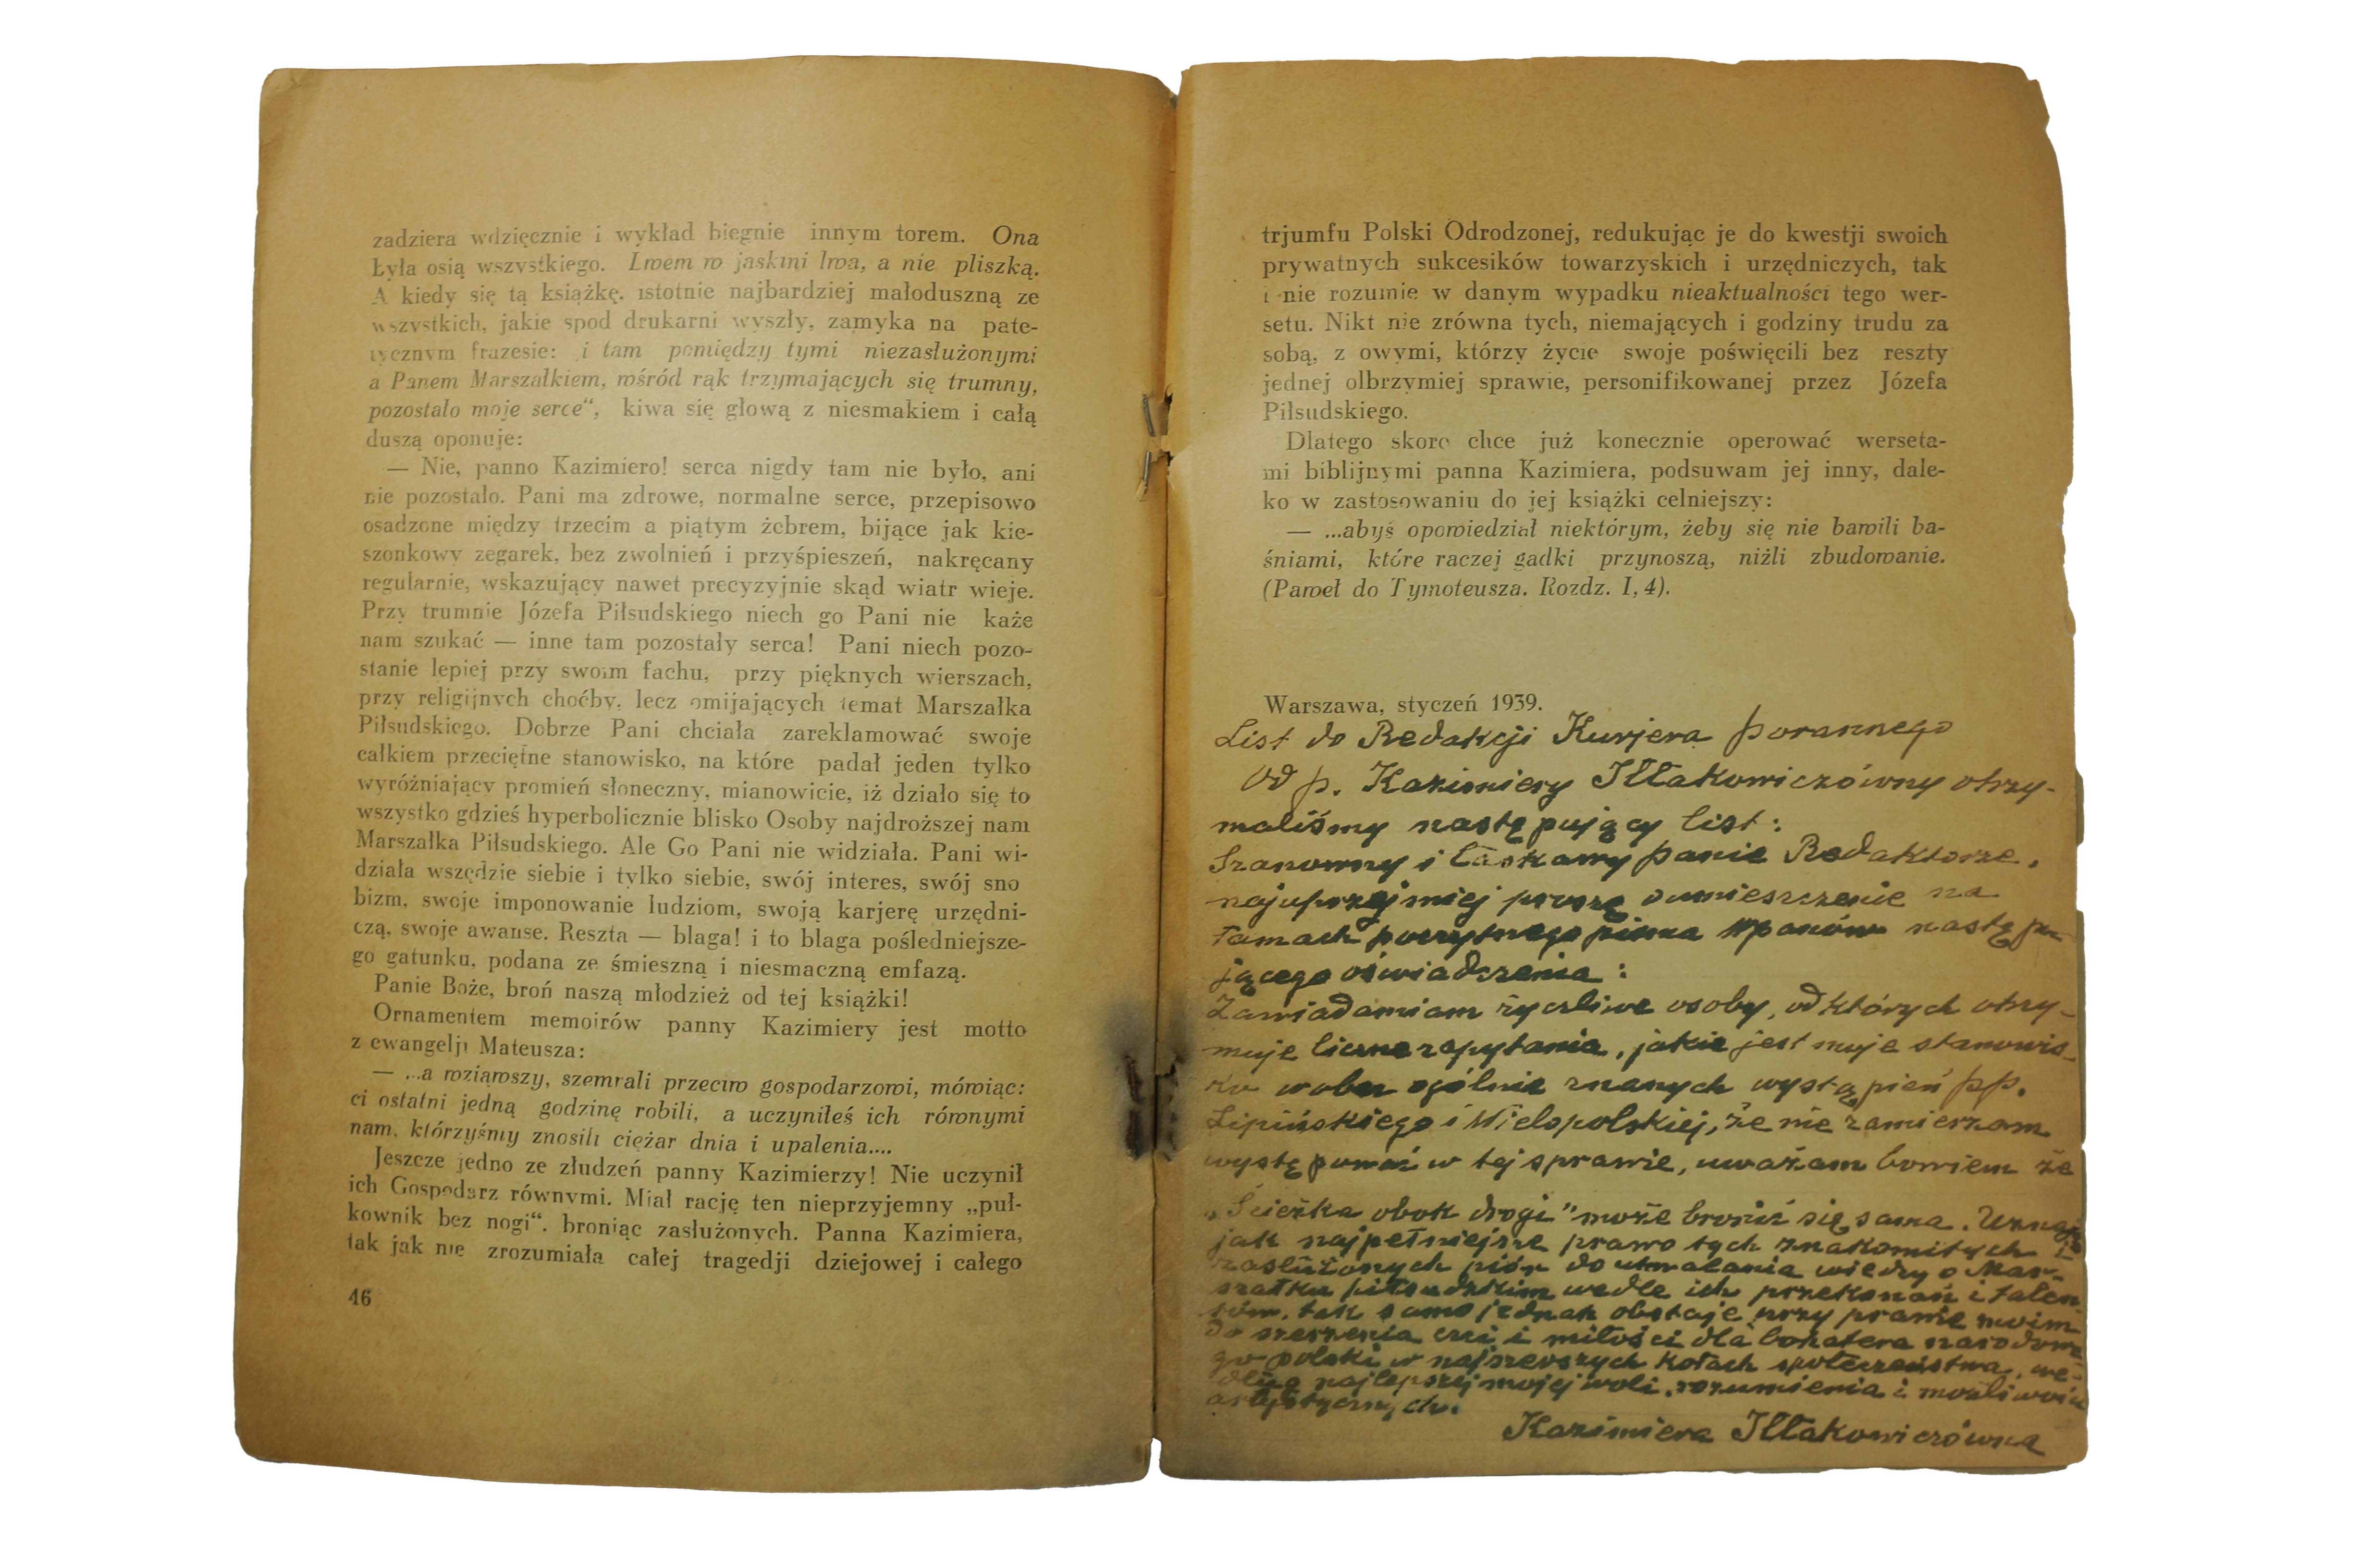 zadziera wdzięcznie i wykład biegnie innym torem. Ona
była osią wszystkiego. Lwem w jaskini lwa, a nie pliszką.
A kiedy się tą książkę, istotnie najbardziej małoduszną ze
wszystkich, jakie spod drukarni wyszły, zamyka na pate-
tycznym frazesie: „i tam pomiędzy tymi niezasłużonymi
a Panem Marszałkiem, wśród rąk trzymających się trumny,
pozostało moje serce“, kiwa się głową z niesmakiem i całą
duszą oponuje:
— Nie, panno Kazimiero! serca nigdy tam nie było, ani
nie pozostało. Pani ma zdrowe, normalne serce, przepisowo
osadzone między trzecim a piątym żebrem, bijące jak kie-
szonkowy zegarek, bez zwolnień i przyśpieszeń, nakręcany
regularnie, wskazujący nawet precyzyjnie skąd wiatr wieje.
Przy trumnie Józefa Piłsudskiego niech go Pani nie każe
nam szukać — inne tam pozostały serca! Pani niech pozo-
stanie lepiej przy swoim fachu, przy pięknych wierszach,
przy religijnych choćby, lecz omijających temat Marszałka
Piłsudskiego. Dobrze Pani chciała zareklamować swoje
całkiem przeciętne stanowisko, na które padał jeden tylko
wyróżniający promień słoneczny, mianowicie, iż działo się to
wszystko gdzieś hyperbolicznie blisko Osoby najdroższej nam
Marszałka Piłsudskiego. Ale Go Pani nie widziała. Pani wi-
działa wszędzie siebie i tylko siebie, swój interes, swój sno
bizm, swoje imponowanie ludziom, swoją karjerę urzędni-
czą, swoje awanse. Reszta — blaga! i to blaga pośledniejsze-
go gatunku, podana ze śmieszną i niesmaczną emfazą.
Panie Boże, broń naszą młodzież od tej książki!
Ornamentem memoirów panny Kazimiery jest motto
z ewangelji Mateusza:
— ...a wziąwszy, szemrali przeciw gospodarzowi, mówiąc:
ci ostatni jedną godzinę robili, a uczyniłeś ich równymi
nam, którzyśmy znosili ciężar dnia i upalenia....
Jeszcze jedno ze złudzeń panny Kazimierzy! Nie uczynił
ich Gospodarz równymi. Miał rację ten nieprzyjemny „puł-
kownik bez nogi“, broniąc zasłużonych. Panna Kazimiera,
tak jak nie zrozumiała całej tragedji dziejowej i całego
46
trjumfu Polski Odrodzonej, redukując je do kwestji swoich
prywatnych sukcesików towarzyskich i urzędniczych, tak
i nie rozumie w danym wypadku nieaktualności tego wer-
setu. Nikt nie zrówna tych, niemających i godziny trudu za
sobą, z owymi, którzy życie swoje poświęcili bez reszty
jednej olbrzymiej sprawie, personifikowanej przez Józefa
Piłsudskiego.
Dlatego skoro chce już konecznie operować werseta-
mi biblijnymi panna Kazimiera, podsuwam jej inny, dale-
ko w zastosowaniu do jej książki celniejszy:
— ...abyś opowiedział niektórym, żeby się nie bawili ba-
śniami, które raczej gadki przynoszą, niźli zbudowanie.
(Paweł do Tymoteusza. Rozdz. I, 4).
Warszawa, styczeń 1939.
List do Redakcji Kurjera porannego
Od p. Kazimiery Iłłakowiczówny otrzy-
maliśmy następujący list:
Szanowny i łaskawy panie Redaktorze,
najuprzejmiej proszę o umieszczenie na
łamach poczytnego pisma Panów nastę pu
jącego oświadczenia:
Zawiadamiam życzliwe osoby, od których otrzy-
muje liczne zapytania, jakie jest moje stanowis-
ko wobec ogólnie znanych wystąpień pp.
Lipińskiego i Wielopolskiej, że nie zamierzam
występować w tej sprawie, uważam bowiem że
„Ścieżka obok drogi" może bronić się sama. Uznaję
jak najpełniejsze prawo tych znakomitych i
zasłużonych piór do utrwalania wiedzy o Mar-
szałku piłsudskim wedle ich przekonań i talen
tów, tak samo jednak obstaję przy prawie moim
do szerzenia czci i miłości dla bohatera narodowe
go polski w najszerszych kołach społeczeństwa, we-
dług najlepszej mojej woli, rozumienia i możliwości
artystycznych.
Kazimiera Iłłakowiczówna